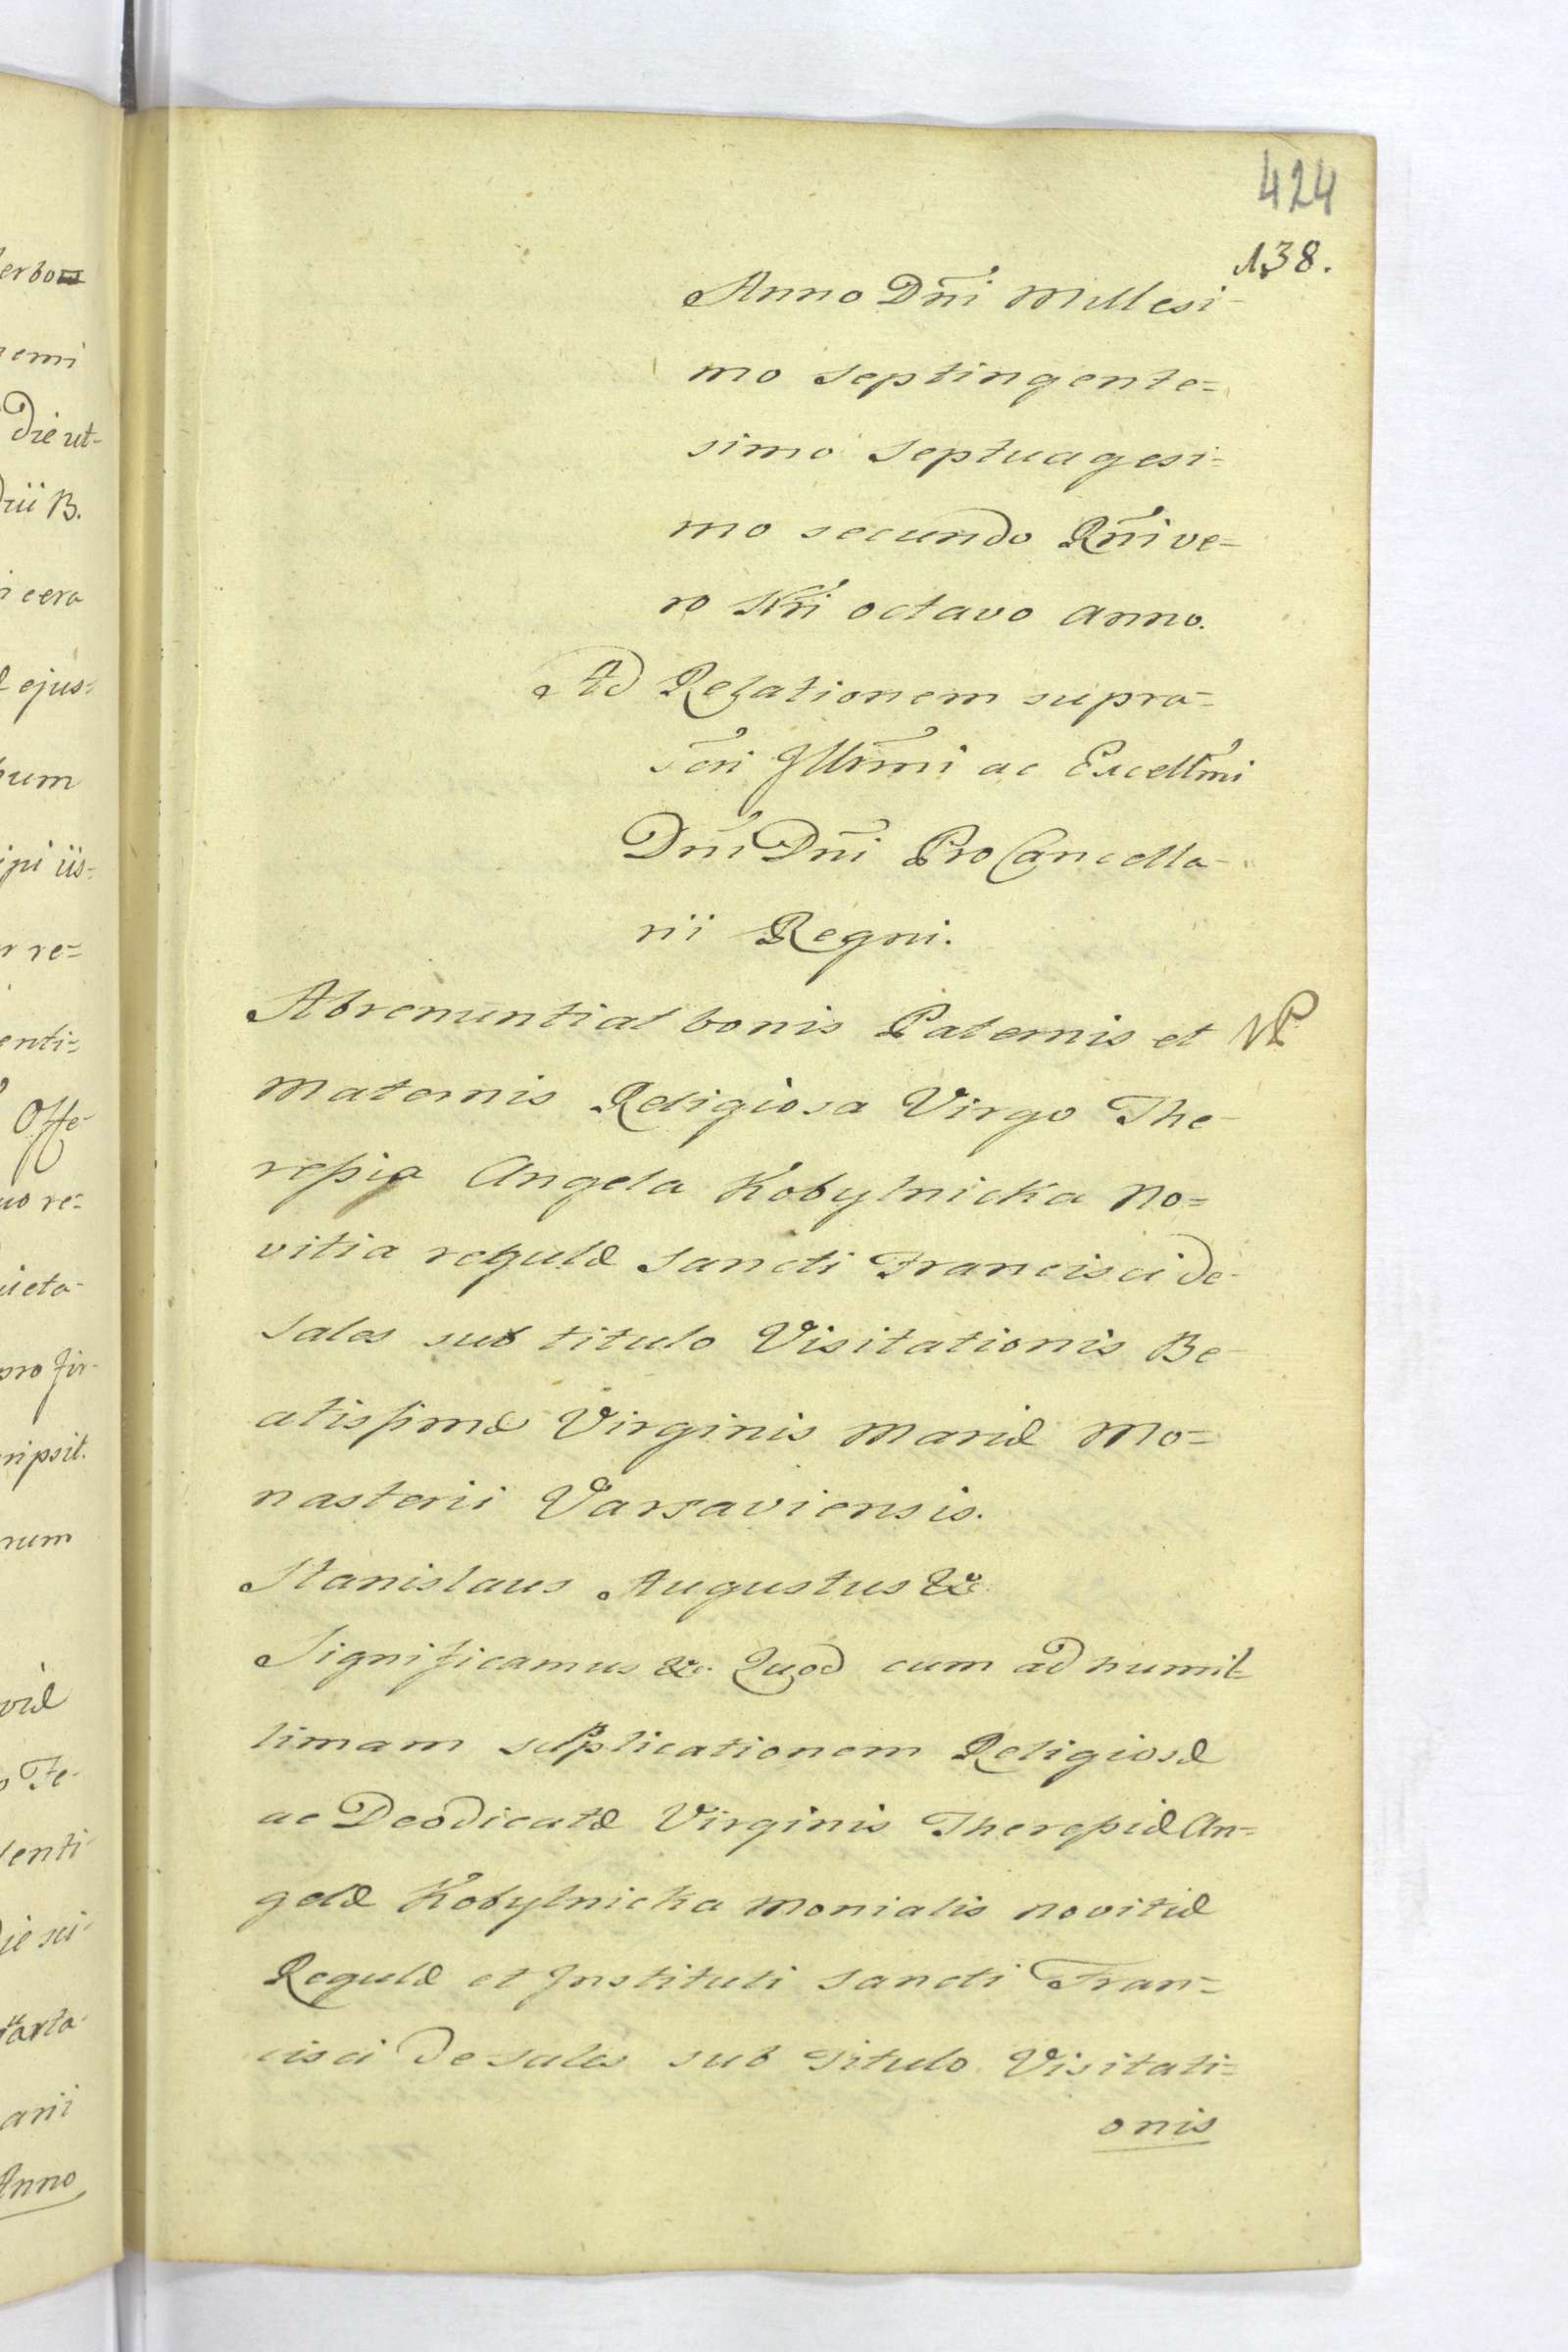 424
138.
Anno Dñi Millesi-
mo septingente=
simo septuagesi=
mo secundo Rñi ve=
ro Nři octavo anno.
Ad Relationem supra=
Illrmi ac Excellmi
Dñi Dñi ProCancella-
rii Regni.
Abrenuntiat bonis Paternis et NP
Maternis Religiosa Virgo The-
ressia Angela Kobylnicka No=
vitia regulæ Sancti Francisci de
Sales sub titulo Visitationis Be-
atissimæ Virginis Mariæ Mo=
nasterii Varsaviensis.
Stanislaus Augustus &c.
Significamus &c. Quod cum ad humil-
limam supplicationem Religiosæ
ac Deodicatæ Virginis Theressiæ An=
gelæ Kobylnicka Monialis Novitiæ
Regulæ et Instituti Sancti Fran=
cisci de Sales sub Titulo Visitati=
onis
erbo
emi
Die ut-
rii B.
cera
ejus=
um
re=
enti=
Offe-
uo re=
ieta-
pro fir-
ripsit.
num
viæ
Fe-
enti
arta-
arii
Anno